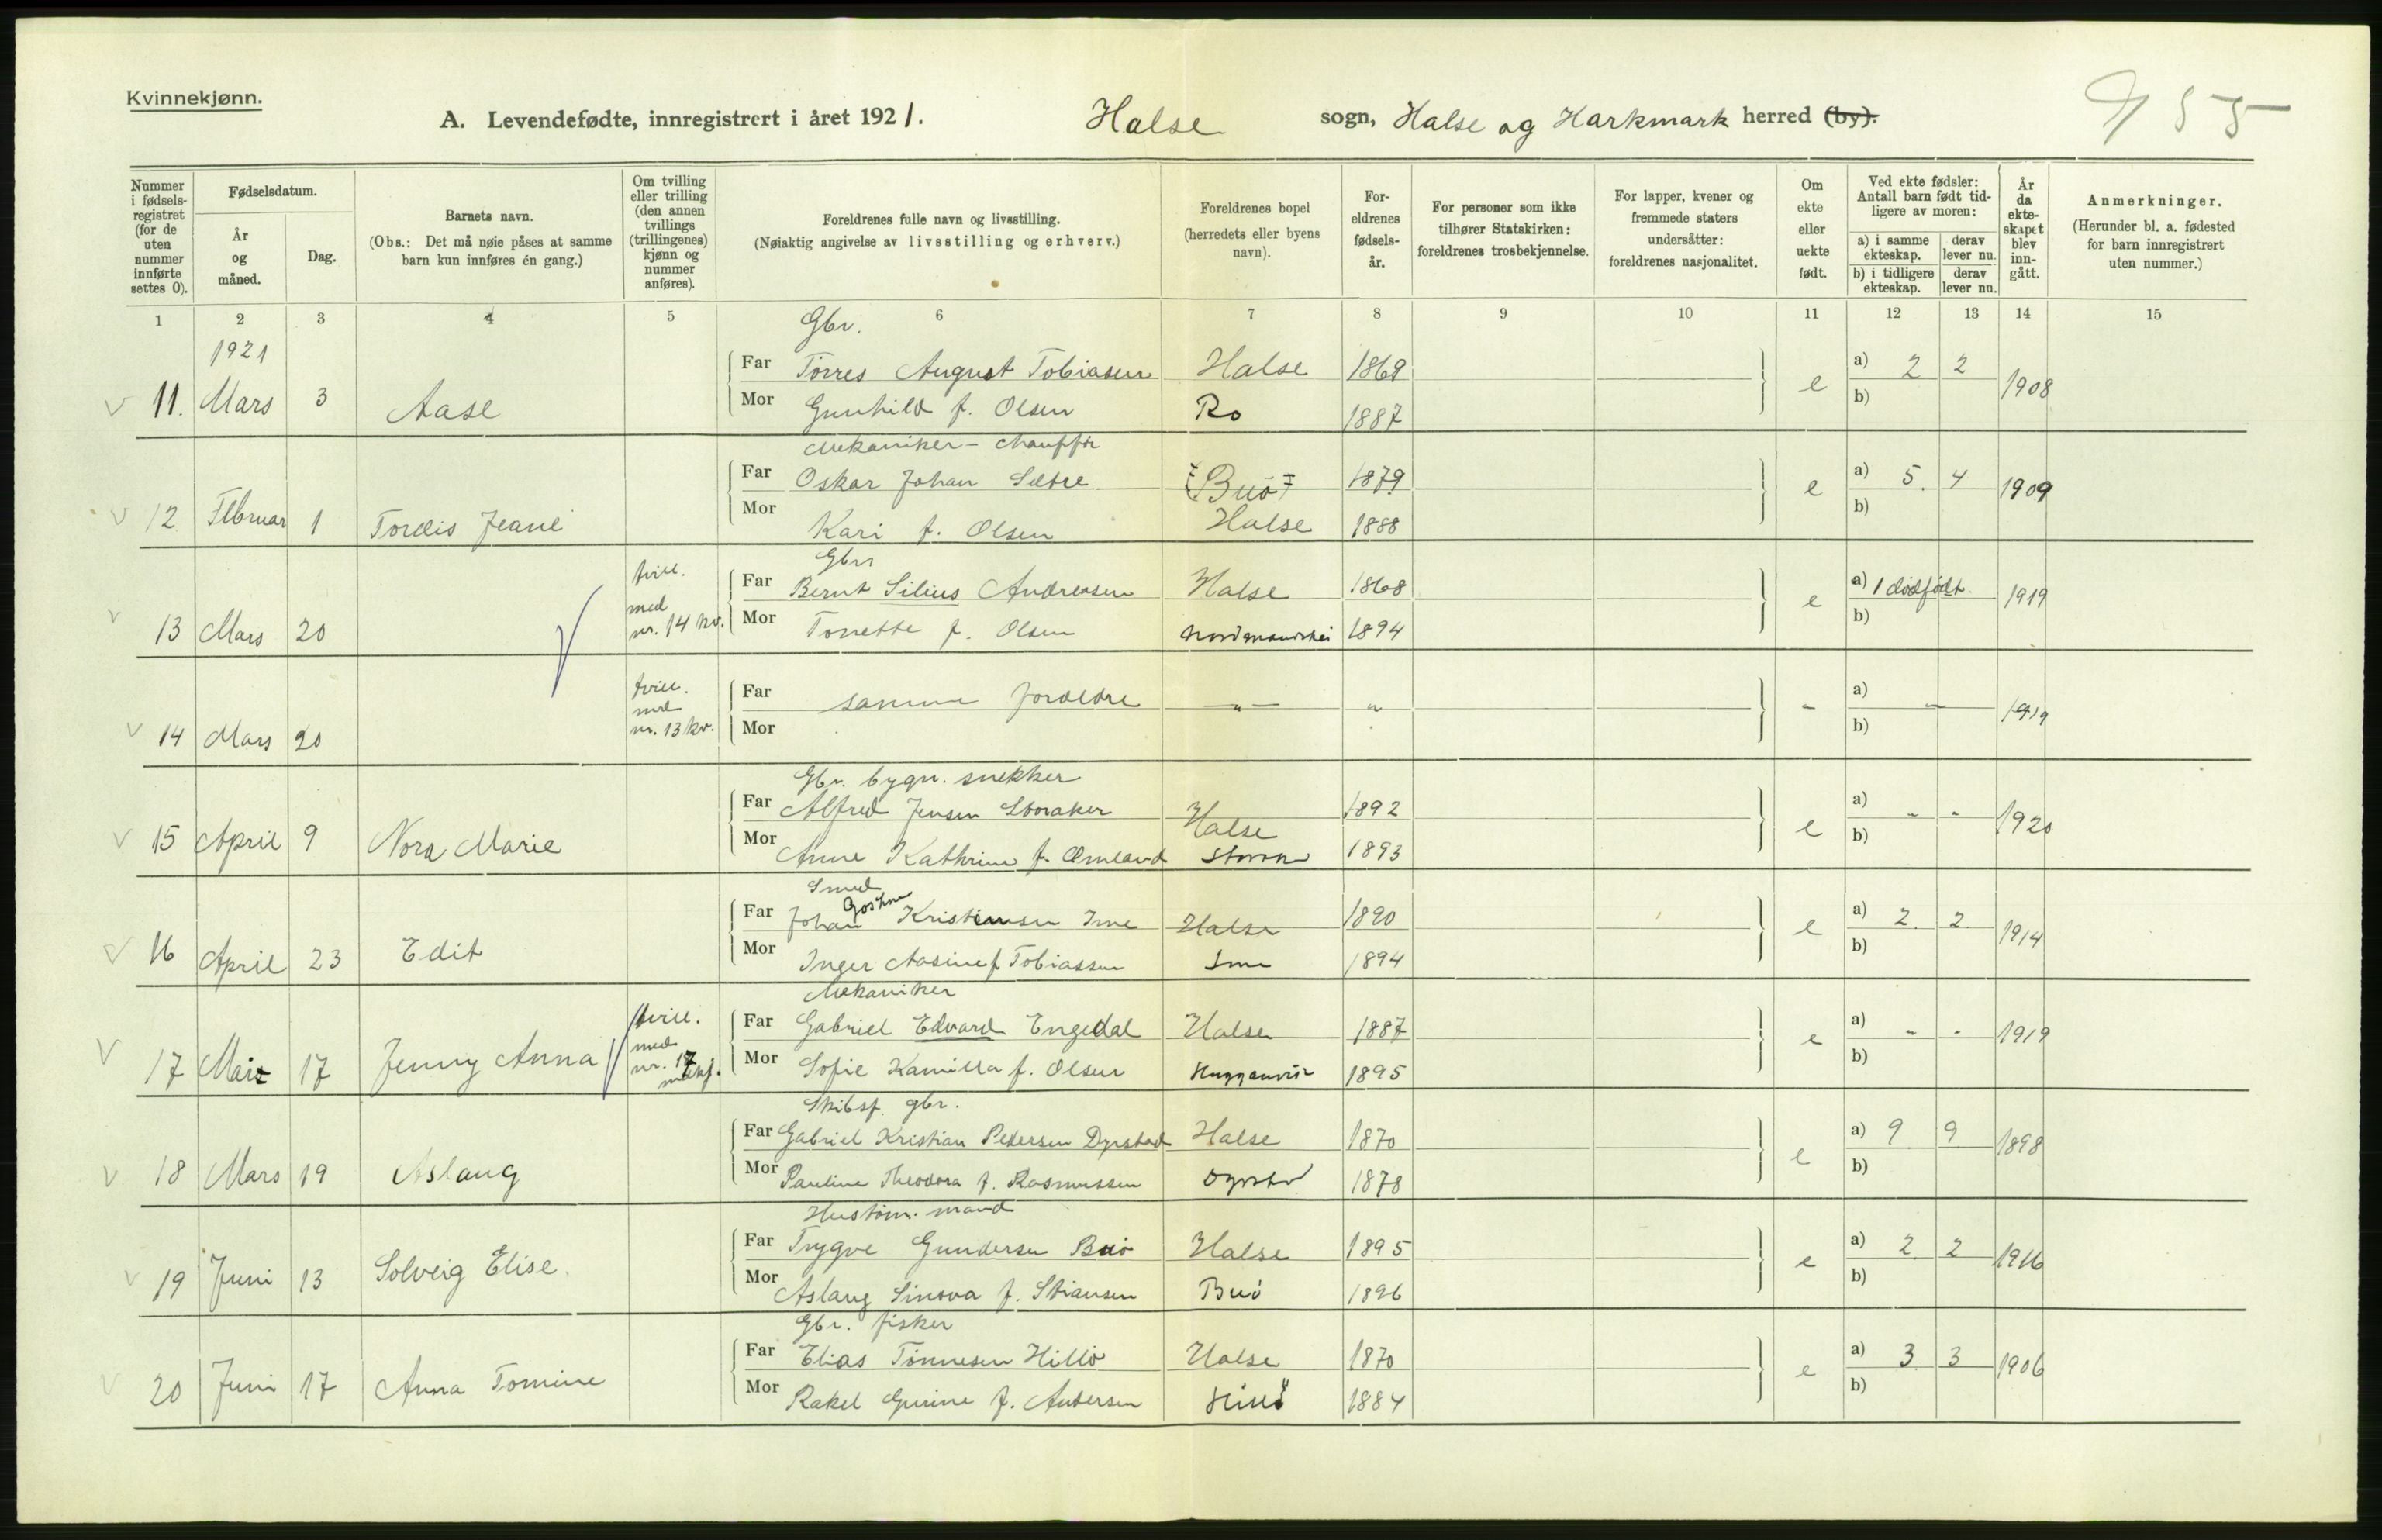 Kvinnekjønn.
A. Levendefødte, innregistrert i året 1921. Halse sogn, Halse og Harkmark herred (by).
55
Nummer i fødselsregistret (for de uten nummer innførte settes 0).
Fødselsdatum.
År og måned.
Dag.
Barnets navn.
(Obs.: Det må nøie påses at samme barn kun innføres én gang.)
Om tvilling eller trilling (den annen tvillings (trillingenes) kjønn og nummer anføres).
Foreldrenes fulle navn og livsstilling.
(Nøiaktig angivelse av livsstilling og erhverv.)
Foreldrenes bopel (herredets eller byens navn).
Foreldrenes fødselsår.
For personer som ikke tilhører Statskirken: foreldrenes trosbekjennelse.
For lapper, kvener og fremmede staters undersåtter: foreldrenes nasjonalitet.
Om ekte eller uekte født.
Ved ekte fødsler: Antall barn født tidligere av moren:
a) i samme ekteskap. derav lever nu.
b) i tidligere ekteskap. derav lever nu.
År da ekteskapet blev inngått.
Anmerkninger.
(Herunder bl. a. fødested for barn innregistrert uten nummer.)
1 2 3 4 5 6 7 8 9 10 11 12 13 14 15
1921
Gbr.
Far Tørres August Tobiasen Halse 1869 a) 2 2
11. Mars 3 Aase e 1908
Mor Gunhild f. Olsen Ro 1887 b)
Mekaniker - chauffør
Far Oskar Johan Sætre Buø 1879 a) 5. 4
12 Februar 1 Tordis Jeane e 1909
Mor Kari f. Olsen Halse 1888 b)
Gbr
tvill. med nr. 14 kv.
Far Bernt Silius Andreasen Halse 1868 a) 1 dødfødt
13 Mars 20 e 1919
Mor Tonette f. Olsen 1894 b)
tvill. med nr. 13 kv.
Far samme foreldre - " - " a) -
14 Mars 20 - 1919
Mor b)
Gbr. bygn. snekker
Far Alfred Jensen Storaker Halse 1892 a) - -
15 April 9 Nora Marie e 1920
Mor Anne Kathrine f. Omland 1893 b)
Smed
Far Johan Kristensen Ime Halse 1890 a) 2. 2
16 April 23 Edit e 1914
Mor Inger Aasine f. Tobiassen Ime 1894 b)
Mekaniker
tvill. med nr. 17
Far Gabriel Edvard Engedal Halse 1887 a) - -
17 Mai 17 Jenny Anna e 1919
Mor Sofie Kamilla f. Olsen 1895 b)
Skibsf. gbr.
Far Gabriel Kristian Pedersen Dyrstad Halse 1870 a) 9 9
18 Mars 19 Aslaug e 1898
Mor Pauline Theodora f. Rasmussen Dyrstad 1878 b)
Hustøm. mand
Far Trygve Gundersen Buø Halse 1895 a) 2. 2
19 Juni 13 Solveig Elise. e 1916
Mor Aslaug Sinova f. Stiansen Buø 1896 b)
Gbr. fisker
Far Elias Tønnesen Hillø Halse 1870 a) 3. 3
20 Juni 17 Anna Tomine e 1906
Mor Rakel Gurine f. Andersen Hillø 1884 b)